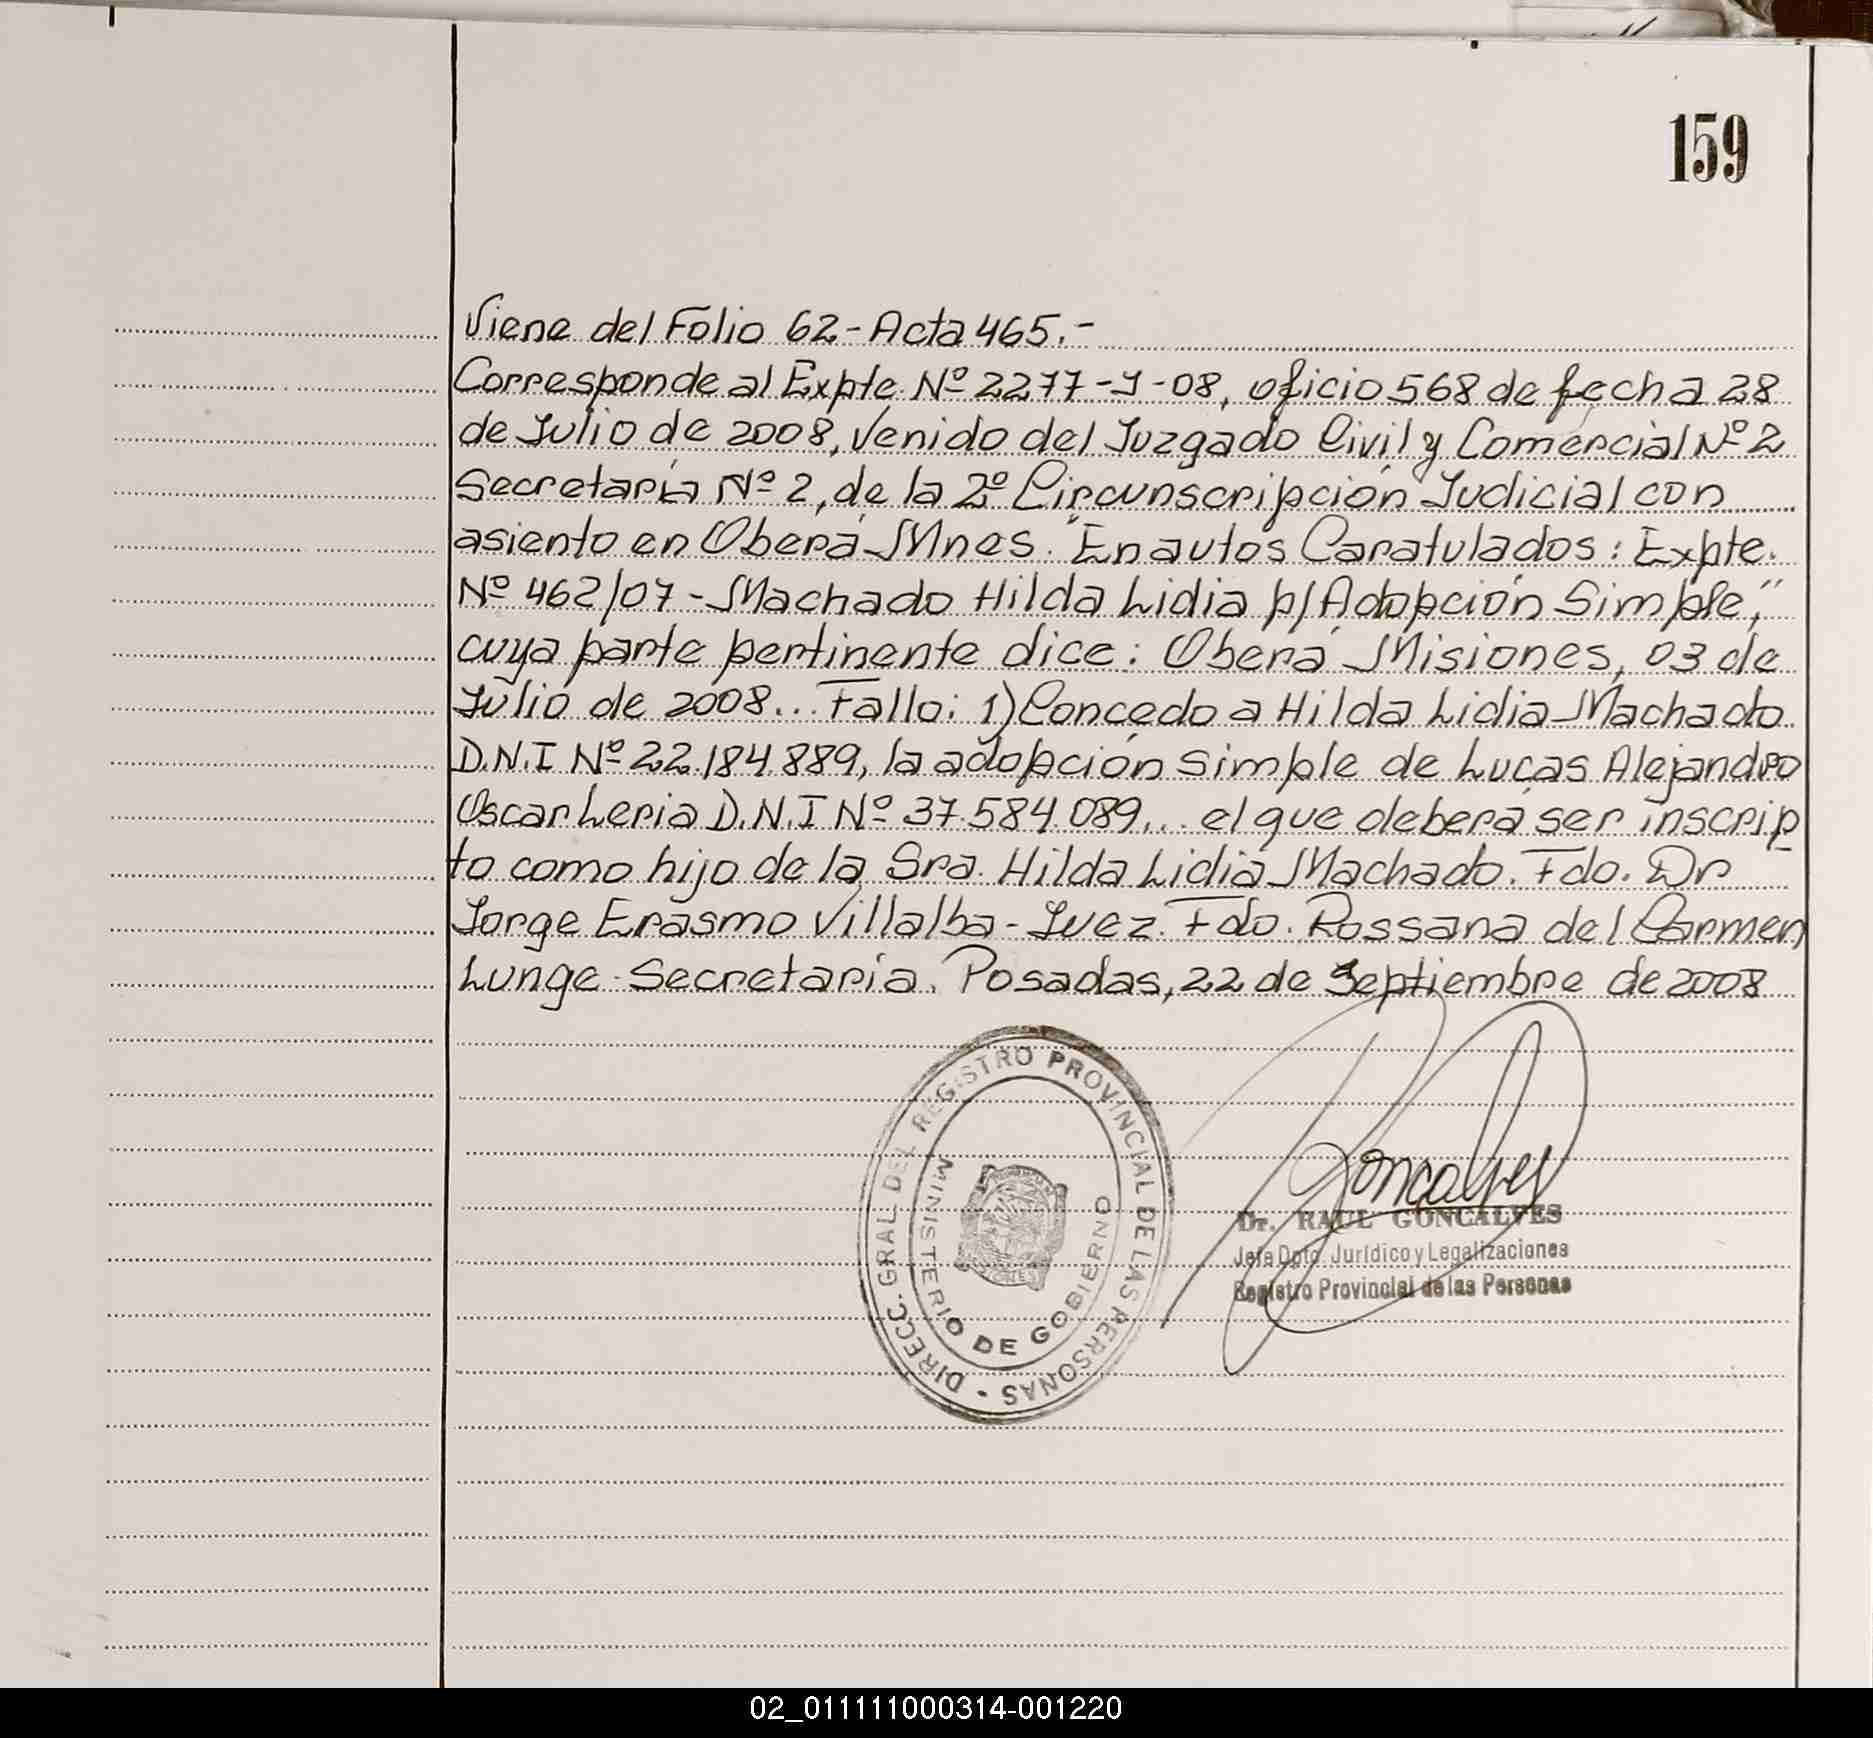 159
Viene del Folio 62-Acta 465.-
Corresponde al Expte. Nº 2277-J-08, oficio 568 de fecha 28
de Julio de 2008, Venido del Juzgado Civil y Comercial Nº 2
Secretaría Nº 2, de la 2º Circunscripción Judicial con
asiento en Oberá Mnes. "En autos Caratulados: Expte.
Nº 462/07 - Machado Hilda Lidia p/Adopción Simple,"
cuya parte pertinente dice: Oberá Misiones, 03 de
Julio de 2008... Fallo: 1) Concedo a Hilda Lidia Machado
D.N.I Nº 22.184.889, la adopción simple de Lucas Alejandro
Oscar Leria D.N.I Nº 37.584.089... el que deberá ser inscrip
to como hijo de la Sra. Hilda Lidia Machado. Fdo. Dr
Jorge Erasmo Villalba - Juez. Fdo. Rossana del Carmen
Lunge - Secretaria. Posadas, 22 de Septiembre de 2008
DIRECC. GRAL. DEL REGISTRO PROVINCIAL DE LAS PERSONAS -
MINISTERIO DE GOBIERNO
Goncalves
Dr. RAUL GONCALVES
Jefe Dpto. Jurídico y Legalizaciones
Registro Provincial de las Personas
02_011111000314-001220